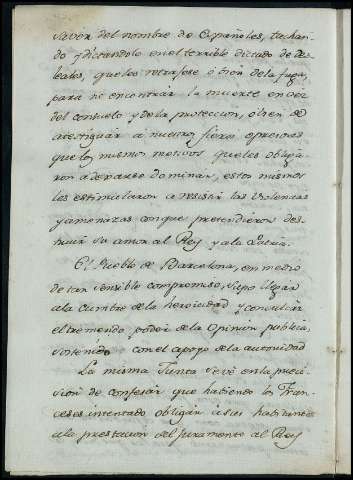 savor del nombre de Españoles, tachan-
do y dictandolo en el terrible dictado de des-
leales, que los retrajese ó bien de la fuga,
para no encontrar la muerte en vez
del consuelo y de la proteccion, ó bien de
atestiguar á nuestros fieros opresores
que los mismos motivos que les obliga-
ron a dexarse dominar, estos mismos
les estimularon a resistir las violencias
y amenazas con que pretendieron des-
truir su amor al Rey y a la Patria.
El Pueblo de Barcelona, en medio
de tan sensible compromiso, supo llegar
a la cumbre de la heroicidad y
el tremendo poder de la Opinion publica,
sostenido con el apoyo de la autoridad
La misma Junta se vé en la preci-
sion de confesar que habiendo los Fran-
ceses intentado obligar á sus habitantes
a la prestacion del juramento al Rey